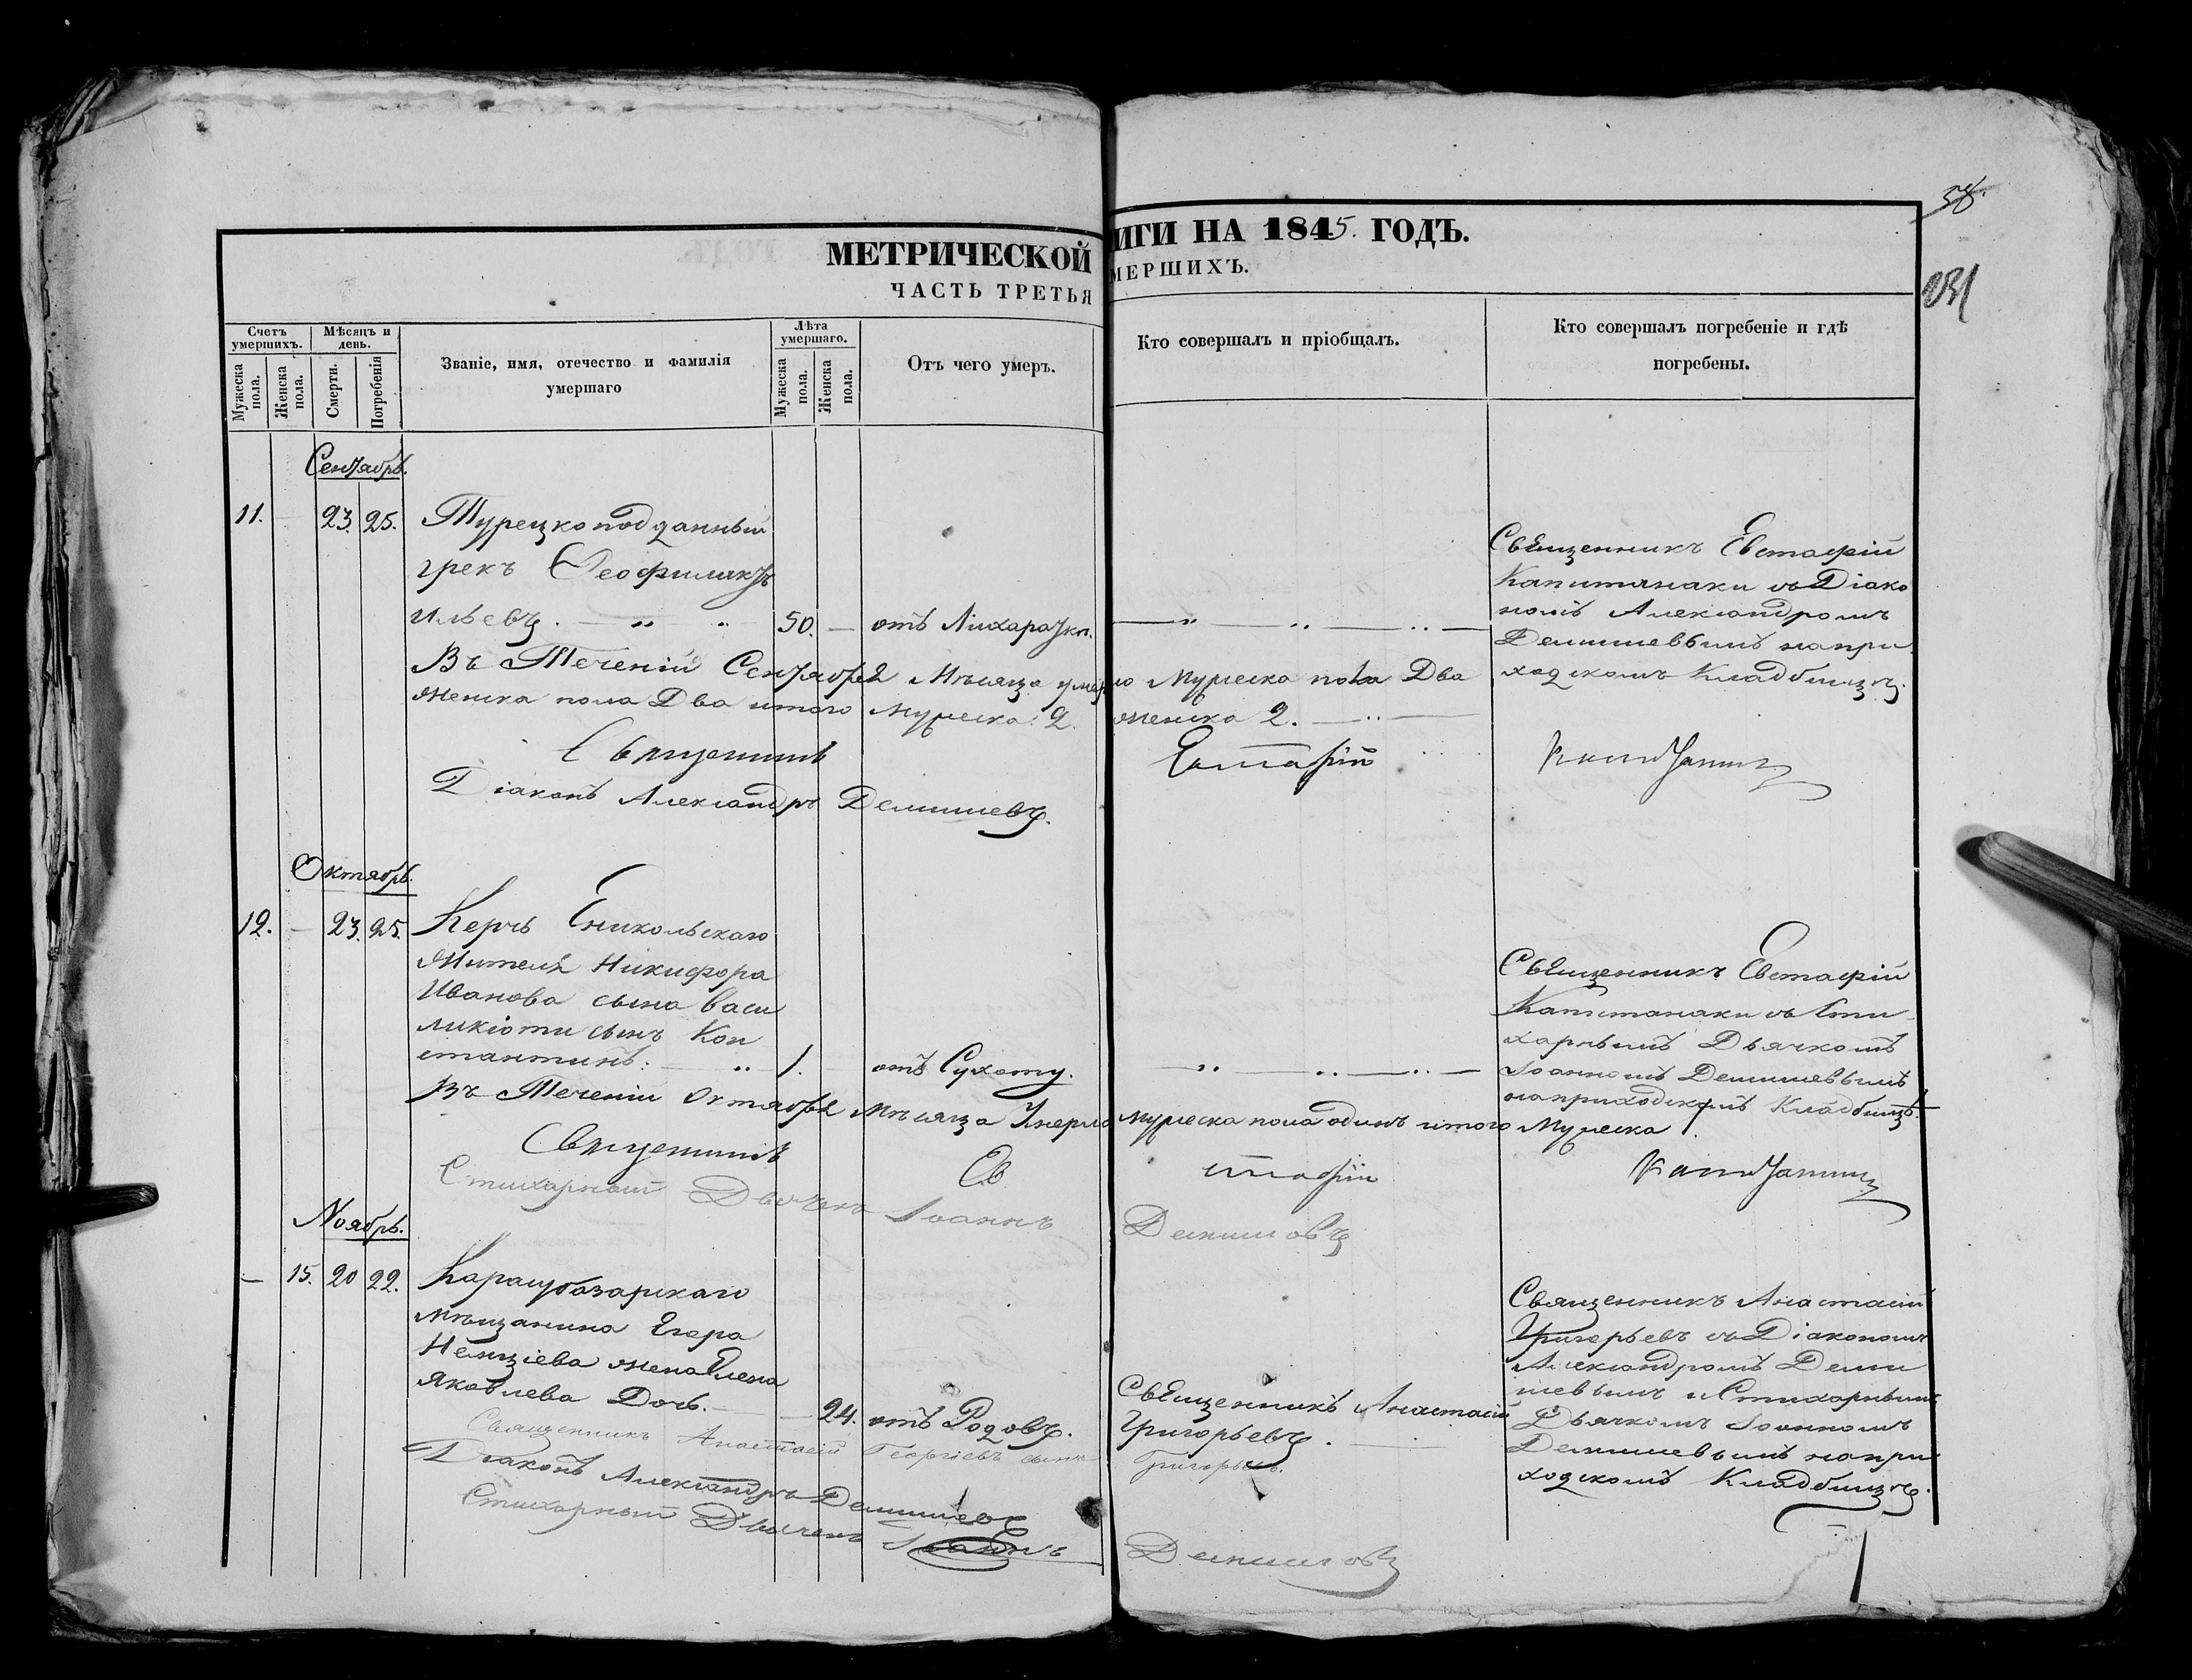 38.
231
МЕТРИЧЕСКОЙ
ИГИ НА 1845. ГОДЪ.
ЧАСТЬ ТРЕТЬЯ
МЕРШИХЪ.
Счетъ умершихъ.
Мужеска пола.
Женска пола.
Мѣсяцъ и день.
Смерти.
Погребенія
Званіе, имя, отечество и фамилія
умершаго
Лѣта умершаго.
Мужеска пола.
Женска пола.
Отъ чего умеръ.
Кто совершалъ и пріобщалъ.
Кто совершалъ погребеніе и гдѣ
погребены.
Сентябрь.
11. 23. 25. Турецкоподданный
грекъ Феофилактъ
Ильевъ. 50. отъ Лихарадки.
Священникъ Евстафій
Капитанаки съ Діако
номъ Александромъ
Демишевымъ на при
ходскомъ Кладбищѣ.
Въ Теченіи Сентября Мѣсяца умерло Мужеска пола Два
Женска пола Два итого Мужеска 2. Женска 2.
Священникъ Евстафій
Діаконъ Александръ Демишевъ.
Октябрь.
12. 23. 25. Керчь Еникольскаго
Жителя Никифора
Иванова сына Васи
ликіоти сынъ Кон
стантинъ. 1. отъ Сухоту.
Священникъ Евстафій
Капитанаки съ Сти
харнымъ Дьячкомъ
Іоанномъ Демишевымъ
на приходскомъ Кладбищѣ.
Въ Теченіи Октября Мѣсяца Умерло мужеска пола одинъ итого Мужеска 1.
Священникъ Евстафій
Стихарный Дьячекъ Іоаннъ Демишовъ
Ноябрь.
15. 20 22. Карасубазарскаго
мѣщанина Егора
жена Елена
Яковлева Дочь. 24. отъ Родовъ.
Священникъ Анастасій
Григорьевъ.
Священникъ Анастасій
Григорьевъ съ Діакономъ
Александромъ Деми
шевымъ и Стихарнымъ
Дьячкомъ Іоанномъ
Демишевымъ на при
ходскомъ Кладбищѣ.
Священникъ Анастасій Георгіевъ сынъ Григорьевъ.
Діаконъ Александръ Демишевъ
Стихарный Дьячекъ Іоаннъ Демишовъ